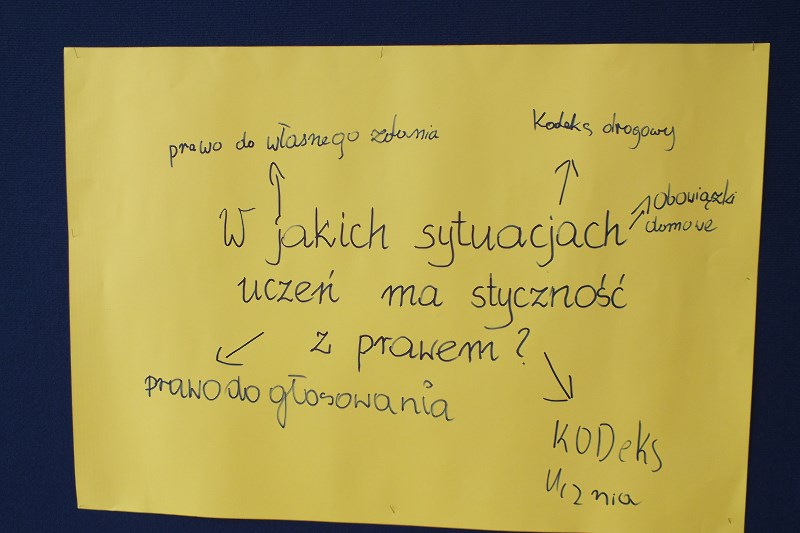 prawo do własnego zdania
Kodeks drogowy
Obowiązki
domowe
W jakich sytuacjach
uczeń ma styczność
z prawem?
prawo do głosowania
KODeks
Ucznia